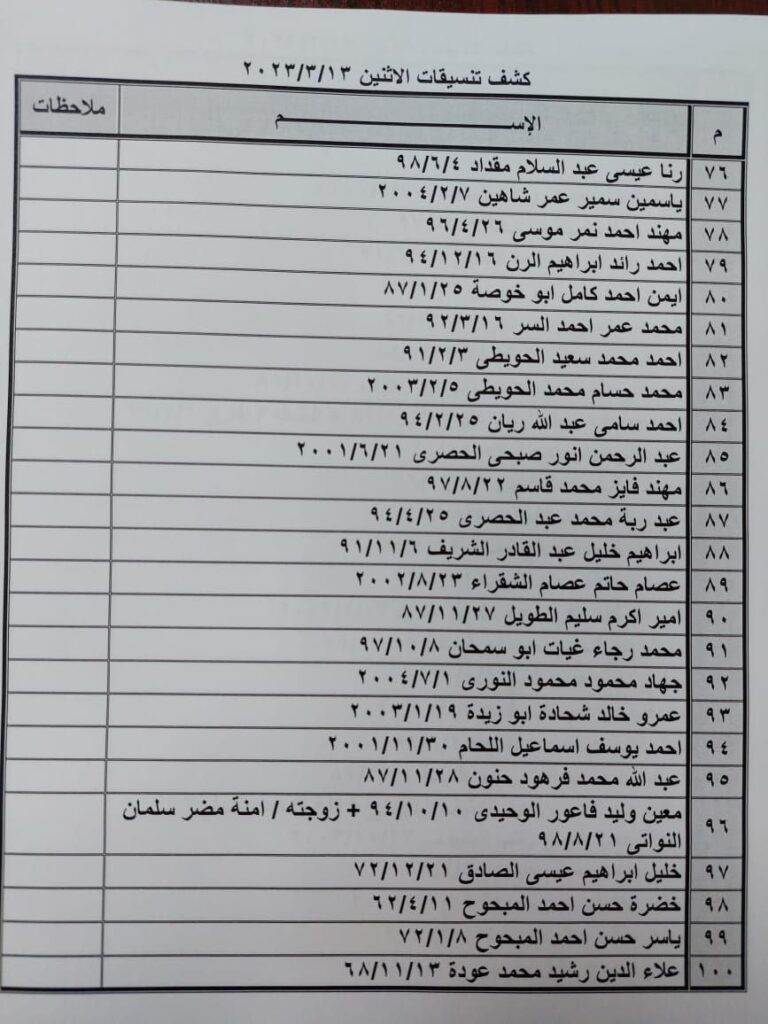 كشف تنسيقات الاثنين ٢٠٢٣/٣/١٣
م الإســـــــــــــــم ملاحظات
٧٦ رنا عيسى عبد السلام مقداد ٩٨/٦/٤
٧٧ ياسمين سمير عمر شاهين ٢٠٠٤/٢/٧
٧٨ مهند احمد نمر موسى ٩٦/٤/٢٦
٧٩ احمد رائد ابراهيم الرن ٩٤/١٢/١٦
٨٠ ايمن احمد كامل ابو خوصة ٨٧/١/٢٥
٨١ محمد عمر احمد السر ٩٢/٣/١٦
٨٢ احمد محمد سعيد الحويطى ٩١/٢/٣
٨٣ محمد حسام محمد الحويطى ٢٠٠٣/٢/٥
٨٤ احمد سامى عبد الله ريان ٩٤/٢/٢٥
٨٥ عبد الرحمن انور صبحى الحصرى ٢٠٠١/٦/٢١
٨٦ مهند فايز محمد قاسم ٩٧/٨/٢٢
٨٧ عبد ربة محمد عبد الحصرى ٩٤/٤/٢٥
٨٨ ابراهيم خليل عبد القادر الشريف ٩١/١١/٦
٨٩ عصام حاتم عصام الشقراء ٢٠٠٢/٨/٢٣
٩٠ امير اكرم سليم الطويل ٨٧/١١/٢٧
٩١ محمد رجاء غيات ابو سمحان ٩٧/١٠/٨
٩٢ جهاد محمود محمود النورى ٢٠٠٤/٧/١
٩٣ عمرو خالد شحادة ابو زيدة ٢٠٠٣/١/١٩
٩٤ احمد يوسف اسماعيل اللحام ٢٠٠١/١١/٣٠
٩٥ عبد الله محمد فرهود حنون ٨٧/١١/٢٨
٩٦ معين وليد فاعور الوحيدى ٩٤/١٠/١٠ + زوجته / امنة مضر سلمان
النواتى ٩٨/٨/٢١
٩٧ خليل ابراهيم عيسى الصادق ٧٢/١٢/٢١
٩٨ خضرة حسن احمد المبحوح ٦٢/٤/١١
٩٩ ياسر حسن احمد المبحوح ٧٢/١/٨
١٠٠ علاء الدين رشيد محمد عودة ٦٨/١١/١٣